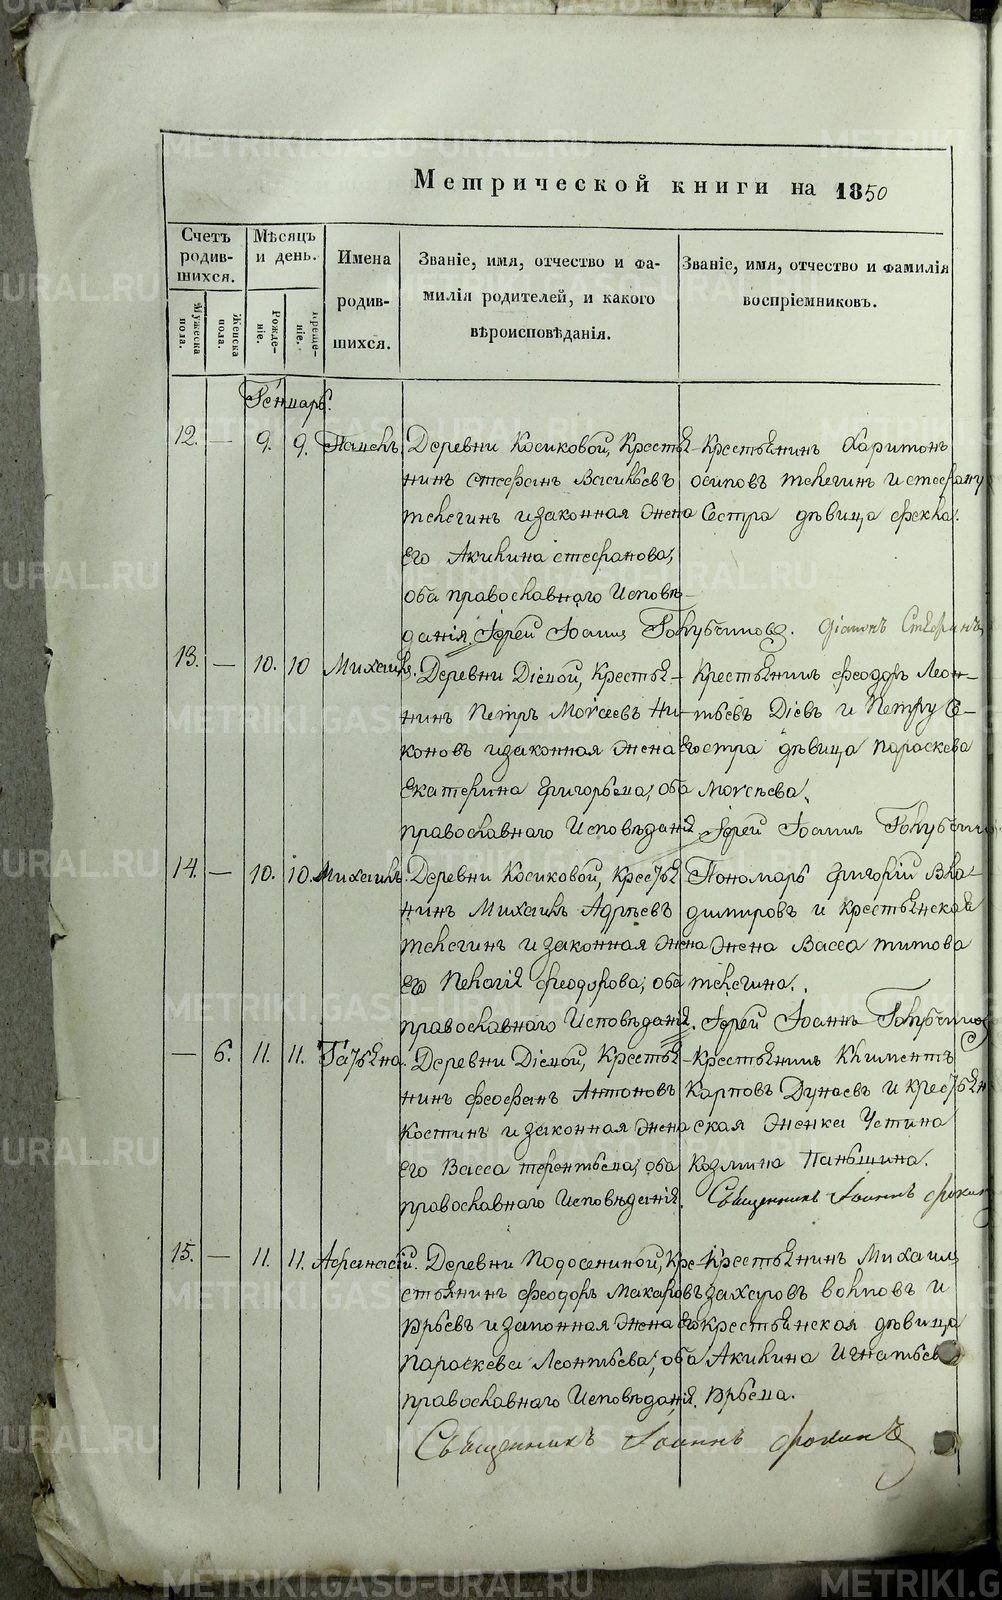 Метрической книги на 1850
Счетъ родив-шихся.
Мѣсяцъ и день.
Имена родив-шихся.
Званіе, имя, отчество и фа-
милія родителей, и какого
вѣроисповѣданія.
Званіе, имя, отчество и фамилія
воспріемниковъ.
Мужеска пола.
Женска пола.
Рожде-ніе.
Креще-ніе.
Генварь.
12. — 9. 9. Павелъ. Деревни Косиковой, Крестья-
нинъ Стефанъ Васильевъ
Телегинъ и законная Жена
Его Акилина Стефанова,
оба православнаго Исповѣ-
данія. Іерей Іоаннъ Голубчиковъ. Діаконъ
Крестьянинъ Харитонъ
Осиповъ Телегинъ и Стефану
Сестра дѣвица Фекла.
13. — 10. 10 Михаилъ. Деревни Діевой, Крестья-
нинъ Петръ Моисеевъ Ни-
коновъ и законная Жена Его
Екатерина Григорьева; оба
православнаго Исповѣданія
Крестьянинъ Феодоръ Леон-
тьевъ Діевъ и Петру Се-
стра дѣвица Параскева
Моисѣева.
Іерей Іоаннъ
14. — 10. 10. Михаилъ. Деревни Косиковой, Крестья
нинъ Михаилъ Адрѣевъ
Телегинъ и законная Жена
Его Пелагія Феодорова; оба
православнаго Исповѣданія.
Пономарь Григорій Вла-
димировъ и Крестьянская
Жена Васса Титова
Телегина.
Іерей Іоаннъ
— 6. 11. 11. Татьяна. Деревни Діевой, Крестья-
нинъ Феофанъ Антоновъ
Костинъ и законная Жена
Его Васса Терентьева; оба
православнаго Исповѣданія.
Крестьянинъ Климентъ
Карповъ Дунаевъ и Крестьян
ская Женка Устина
Козмина Паньшина.
Священникъ Іоаннъ
15. — 11. 11. Афанасій. Деревни Подосениной, Кре-
стьянинъ Феодоръ Макаровъ
Юрьевъ и законная Жена Его
Параскева Леонтьева; оба
православнаго Исповѣданія.
Крестьянинъ Михаилъ
Захаровъ Волковъ и
Крестьянская дѣвица
Акилина Игнатьева
Юрьева.
Священникъ Іоаннъ
METRIKI.GASO-URAL.RU